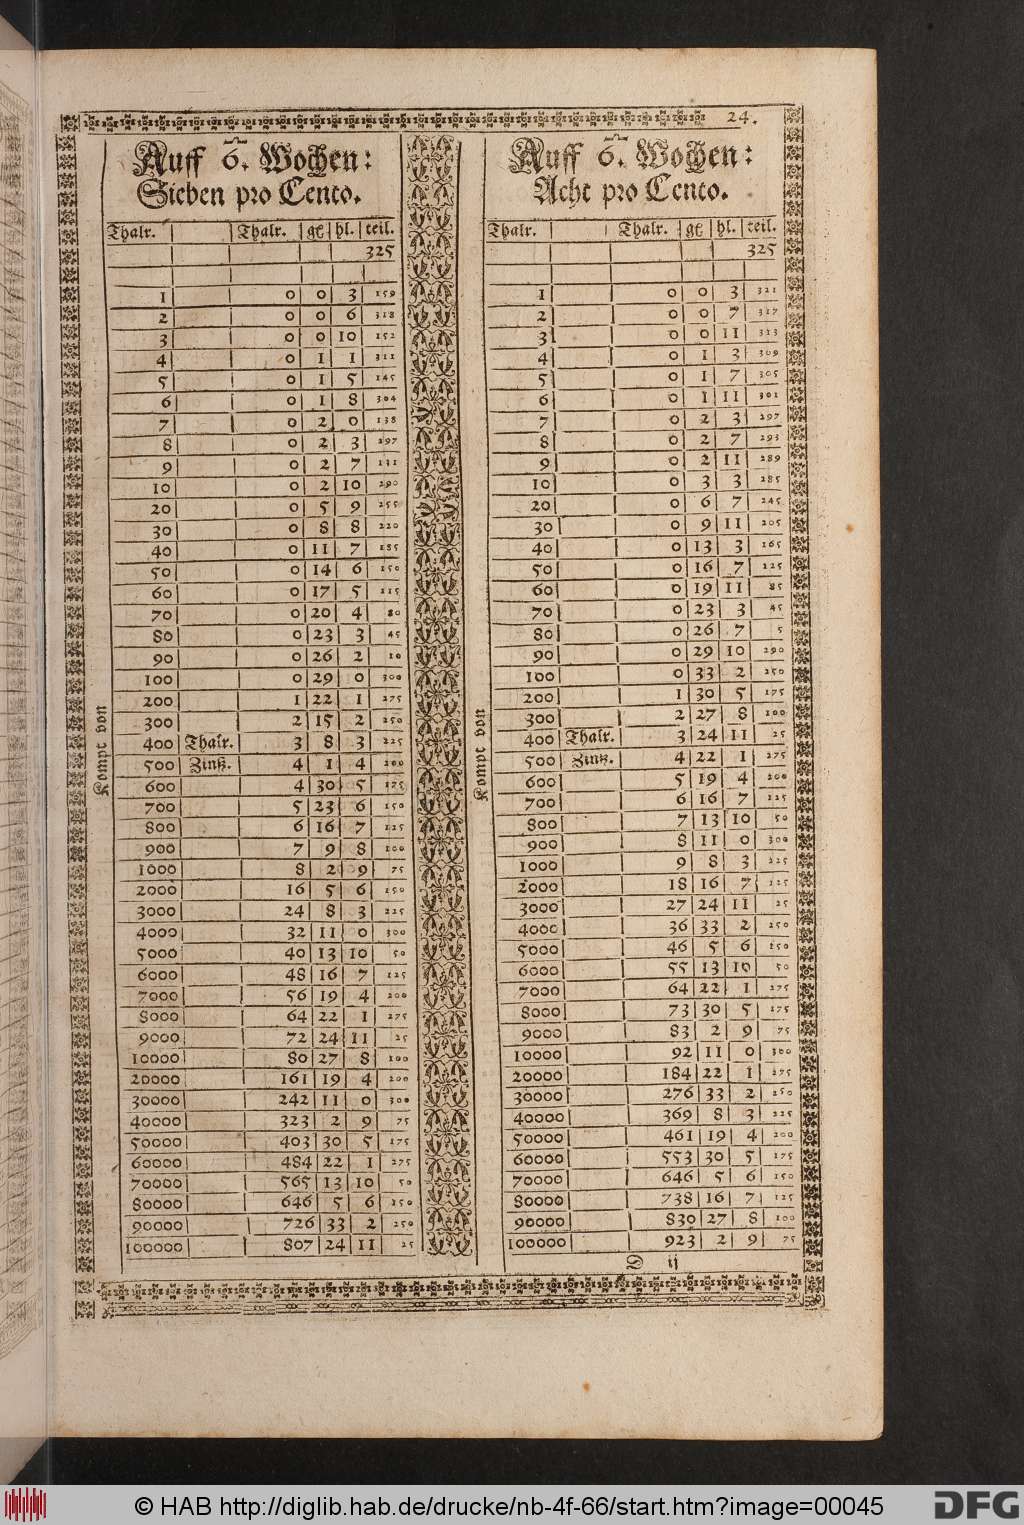 24.
Auff 6. Wochen:
Sieben pro Cento.
Thalr. Thalr. gl hl. teil.
325
1 0 0 3 159
2 0 0 6 318
3 0 0 10 152
4 0 1 1 311
5 0 1 5 145
6 0 1 8 304
7 0 2 0 138
8 0 2 3 297
9 0 2 7 131
10 0 2 10 290
20 0 5 9 255
30 0 8 8 220
40 0 11 7 185
50 0 14 6 150
60 0 17 5 115
70 0 20 4 80
80 0 23 3 45
90 0 26 2 10
100 0 29 0 300
200 1 22 1 275
300 2 15 2 250
400 Thalr. 3 8 3 225
500 Zinß. 4 1 4 200
600 4 30 5 175
700 5 23 6 150
800 6 16 7 125
900 7 9 8 100
1000 8 2 9 75
2000 16 5 6 150
3000 24 8 3 225
4000 32 11 0 300
5000 40 13 10 50
6000 48 16 7 125
7000 56 19 4 200
8000 64 22 1 275
9000 72 24 11 25
10000 80 27 8 100
20000 161 19 4 200
30000 242 11 0 300
40000 323 2 9 75
50000 403 30 5 175
60000 484 22 1 275
70000 565 13 10 50
80000 646 5 6 150
90000 726 33 2 250
100000 807 24 11 25
Kompt von
Auff 6. Wochen:
Acht pro Cento.
Thalr. Thalr. gl hl. teil.
325
1 0 0 3 321
2 0 0 7 317
3 0 0 11 313
4 0 1 3 309
5 0 1 7 305
6 0 1 11 301
7 0 2 3 297
8 0 2 7 293
9 0 2 11 289
10 0 3 3 285
20 0 6 7 245
30 0 9 11 205
40 0 13 3 165
50 0 16 7 125
60 0 19 11 85
70 0 23 3 45
80 0 26 7 5
90 0 29 10 290
100 0 33 2 250
200 1 30 5 175
300 2 27 8 100
400 Thalr. 3 24 11 25
500 Zinß. 4 22 1 275
600 5 19 4 200
700 6 16 7 125
800 7 13 10 50
900 8 11 0 300
1000 9 8 3 225
2000 18 16 7 125
3000 27 24 11 25
4000 36 33 2 250
5000 46 5 6 150
6000 55 13 10 50
7000 64 22 1 275
8000 73 30 5 175
9000 83 2 9 75
10000 92 11 0 300
20000 184 22 1 275
30000 276 33 2 250
40000 369 8 3 225
50000 461 19 4 200
60000 553 30 5 175
70000 646 5 6 150
80000 738 16 7 125
90000 830 27 8 100
100000 923 2 9 75
Kompt von
D ij
© HAB http://diglib.hab.de/drucke/nb-4f-66/start.htm?image=00045
DFG